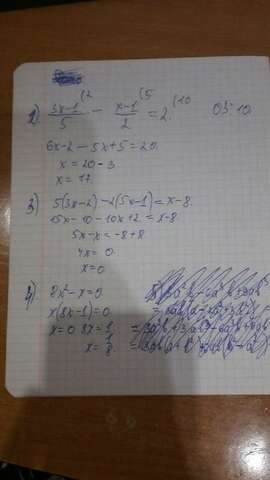 2) (3x-1)/5 (2 - (x-1)/2 (5 = 2. (10 ОЗ 10
6x-2-5x+5=20.
x=20-3.
x=17.
3) 5(3x-2)-2(5x-1)=x-8.
15x-10-10x+2=x-8.
5x-x=-8+8
4x=0.
x=0
4) 8x²-x=0
x(8x-1)=0
x=0 8x=1
x=1/8.